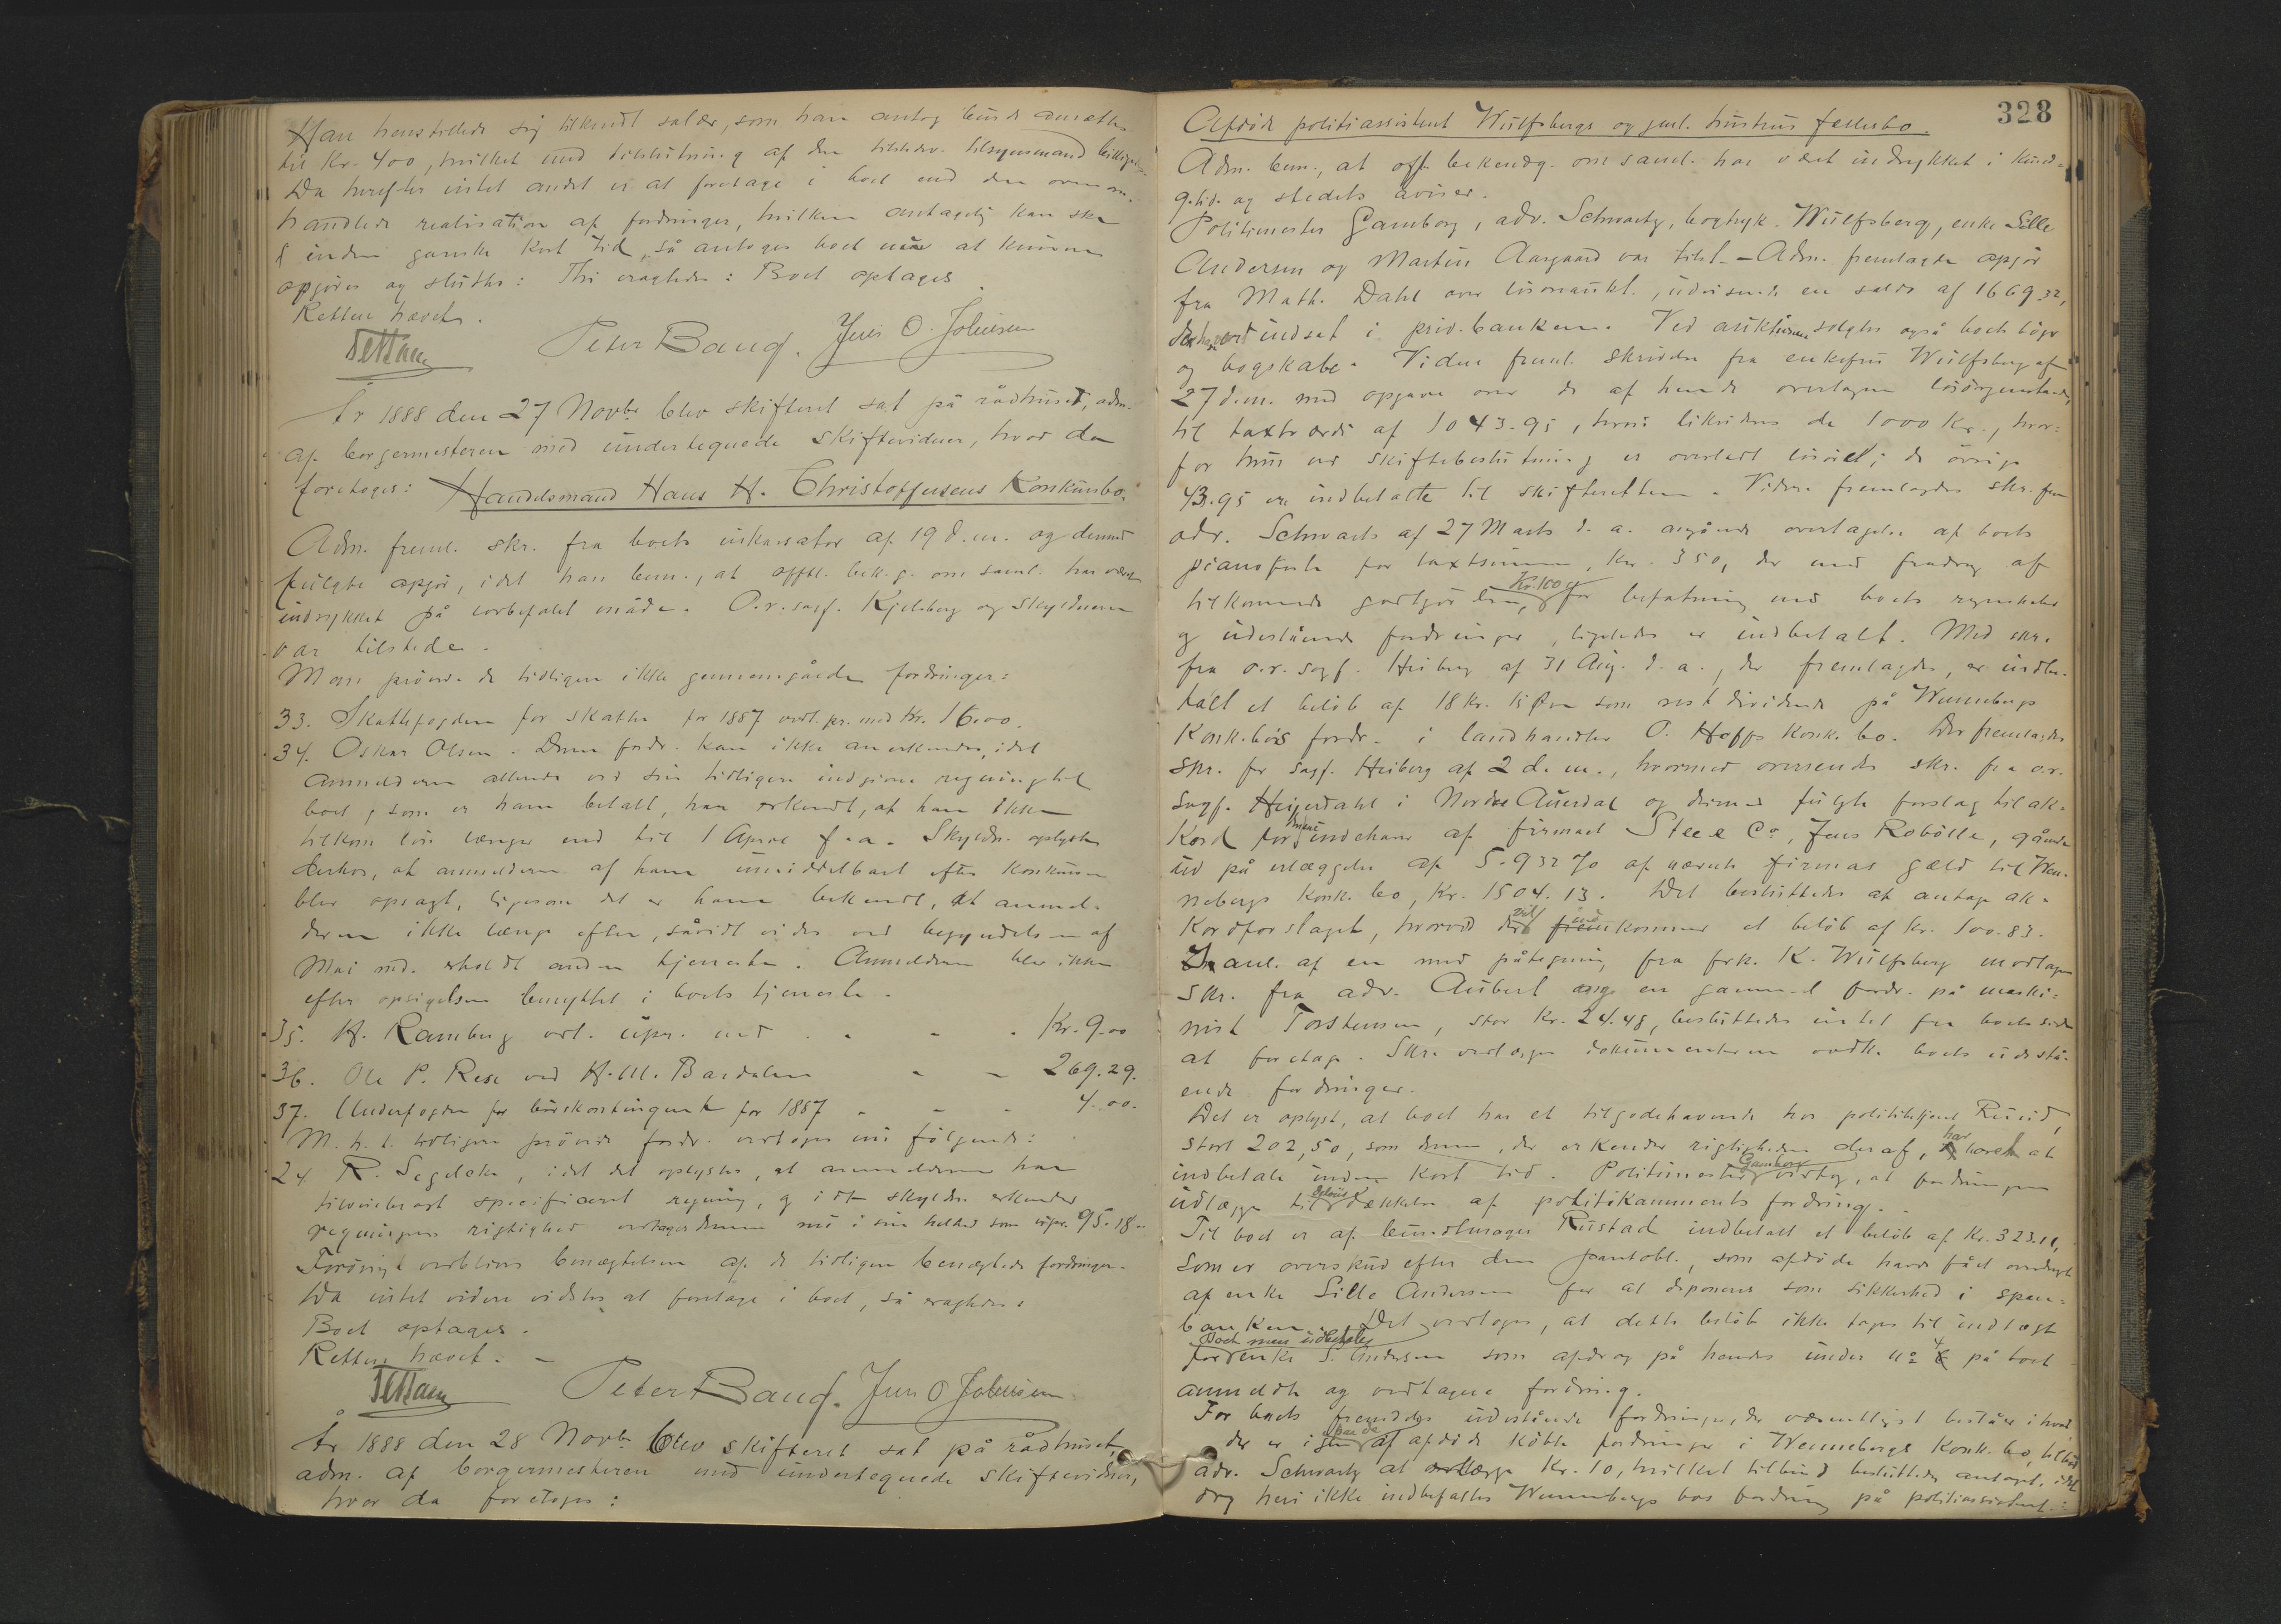 Han henstillede sig tilkendt salær, som han antog burde ansættes
til Kr. 400, hvilket med tilslutning af den tilstedev. tilsynsmand bevilgedes.
Da herefter intet andet er at foretage i boet end den ovenom-
handlede realisation af fordringer, hvilken antagelig kan ske
inden ganske kort tid, så antoges boet nu at kunne
opgjøres og sluttes: Thi eragtedes: Boet optages.
Retten hævet.
Peter Baug. Jens O. Johnsen
År 1888 den 27 Novbr blev skifteret sat på rådhuset, adm.
af borgermesteren med undertegnede skiftevidner, hvor da
foretoges: Handelsmand Hans H. Christoffersens Konkursbo.
Adm. freml. skr. fra boets inkassator af 19 d.m. og dermed
fulgte opgjør, idet han bem., at offtl. bek.g. om saml. har været
indrykket på lovbefalet måde. O.r.sagf. Kjelsberg og Skyldneren
var tilstede.
Man prøvede de tidligere ikke gjennemgåede fordringer:
33. Skattefogden for skatter for 1887 vedt. pr. med Kr. 16.00.
34. Oskar Olsen. Denne fordr. kan ikke anerkendes, idet
anmelderen allerede ved sin tidligere indgivne regning til
boet, som er ham betalt, har erkendt, at han ikke
tilkom løn længer end til 1 April f.a. Skyldn. oplyste
derhos, at anmelderen af ham umiddelbart efter konkursen
blev opsagt, ligesom det er ham bekendt, at anmel-
deren ikke længe efter, såvidt vides ved begyndelsen af
Mai md. erholdt anden tjeneste. Anmelderen blev ikke
efter opsigelsen benyttet i boets tjeneste.
35. H. Ramberg vedt. upr. med - - - Kr. 9.00
36. Ole P. Rese ved H. M. Bardalen - - 269.29.
37. Underfogden for kontingent for 1887 - - - 4.00.
M.h.t. tidligere prøvede fordr. vedtoges nu følgende:
24 R. Segelcke, idet det oplystes, at anmelderen har
tilveiebragt specificeret regning, og idet skyldn. erkender
regningens rigtighed vedtages denne nu i sin helhed som upr. 95.18.
Forøvrigt vedblives benægtelsen af de tidligere benægtede fordringer.
Da intet videre vidstes at foretage i boet, så eragtedes:
Boet optages.
Retten hævet. -
Peter Baug. Jens O Johnsen
År 1888 den 28 Novbr blev skifteret sat på rådhuset,
adm. af borgermesteren med undertegnede skiftevidner,
hvor da foretoges:
328
Afdøde politiassistent Wulfsbergs og gjenl. hustrus fællesbo.
Adm. bem., at off. bekendtg. om saml. har været indrykket i Kund-
g.tid. og stedets aviser.
Politimester Gamborg, adv. Schwartz, bogtryk. Wulfsberg, enke Sille
Andersen og Martin Aargaard var tilst. - Adm. fremlagde opgjør
fra Math. Dahl over løsøreaukt., udvisende en saldo af 1669.32,
der har været indsat i priv.banken. Ved auktionen solgtes også boets bøger
og bogskabe. Videre freml. skrivelse fra enkefru Wulfsberg af
27 d.m. med opgave over de af hende overtagne løsøregjenstande,
til taxtværdi af 1043.95, hvori likvideres de 1000 Kr., hvor-
for hun ved skiftebeslutning er overladt løsøret; de øvrige
43.95 ere indbetalte til skifteretten. Videre fremlagdes skr. fra
adv. Schwartz af 27 Marts d.a. angående overtagelse af boets
pianoforte for taxtsummen, Kr. 350, der med fradrag af
tilkommende godtgjørelse, Kr. 100 for befatning med boets regnskaber
og udestående fordringer, ligeledes er indbetalt. Med skr.
fra o.r.sagf. Heiberg af 31 Aug. d.a., der fremlagdes, er indbe-
talt et beløb af 18 Kr. 15 Øre som restdividende på Wennebergs
Konk.bo's fordr. i landhandler O. Hoffs Konk.bo. Der fremlagdes
skr. fra sagf. Heiberg af 2 d.m., hvormed oversendes skr. fra o.r.
sagf. Heyerdahl i Nordre Aurdal og dermed fulgte forslag til ak-
kord for indehaver af firmaet Steel Co, Jens Robølle, gående
ud på erlæggelse af 5.932 % af nævnte firmas gæld til Wen-
nebergs Konk.bo, Kr. 1504.13. Det besluttedes at antage ak-
kordforslaget, hvorved der vil indkomme et beløb af Kr. 100.83.
I anl. af en med påtegning fra frk. K. Wulfsberg modtagen
skr. fra adv. Aubert ang. en gammel fordr. på maski-
nist Torstensen, stor Kr. 24.48, besluttedes intet fra boets side
at foretage. Skr. vedlægges dokumenterne vedk. boets udestå-
ende fordringer.
Det er oplyst, at boet har et tilgodehavende hos politibetjent Ruud,
stort 202,50, som denne, der erkender rigtigheden deraf, har lovet at
indbetale inden kort tid. Politimester Gamborg vedtog, at fordringen
udlægges til delvis dækkelse af politikammerets fordring.
Til boet er af buntmager Rustad indbetalt et beløb af Kr. 323.11,
som er overskud efter den pantobl., som afdøde havde fået overdraget
af enke Sille Andersen for at deponeres som sikkerhed i spare-
banken. Det vedtoges, at dette beløb ikke tages til indtægt
for boet men udbetales enke S. Andersen som afdrag på hendes under no 4 på boet
anmeldte og vedtagne fordring.
For boets fremdeles udestående fordringer, der væsentligst består i hvad
der er igjen af de af afdøde købte fordringer i Wennebergs Konk.bo, tilbød
adv. Schwartz at erlægge Kr. 10, hvilket tilbud besluttedes antaget, idet
dog heri ikke indbefattes Wennebergs bos fordring på politiassistent-